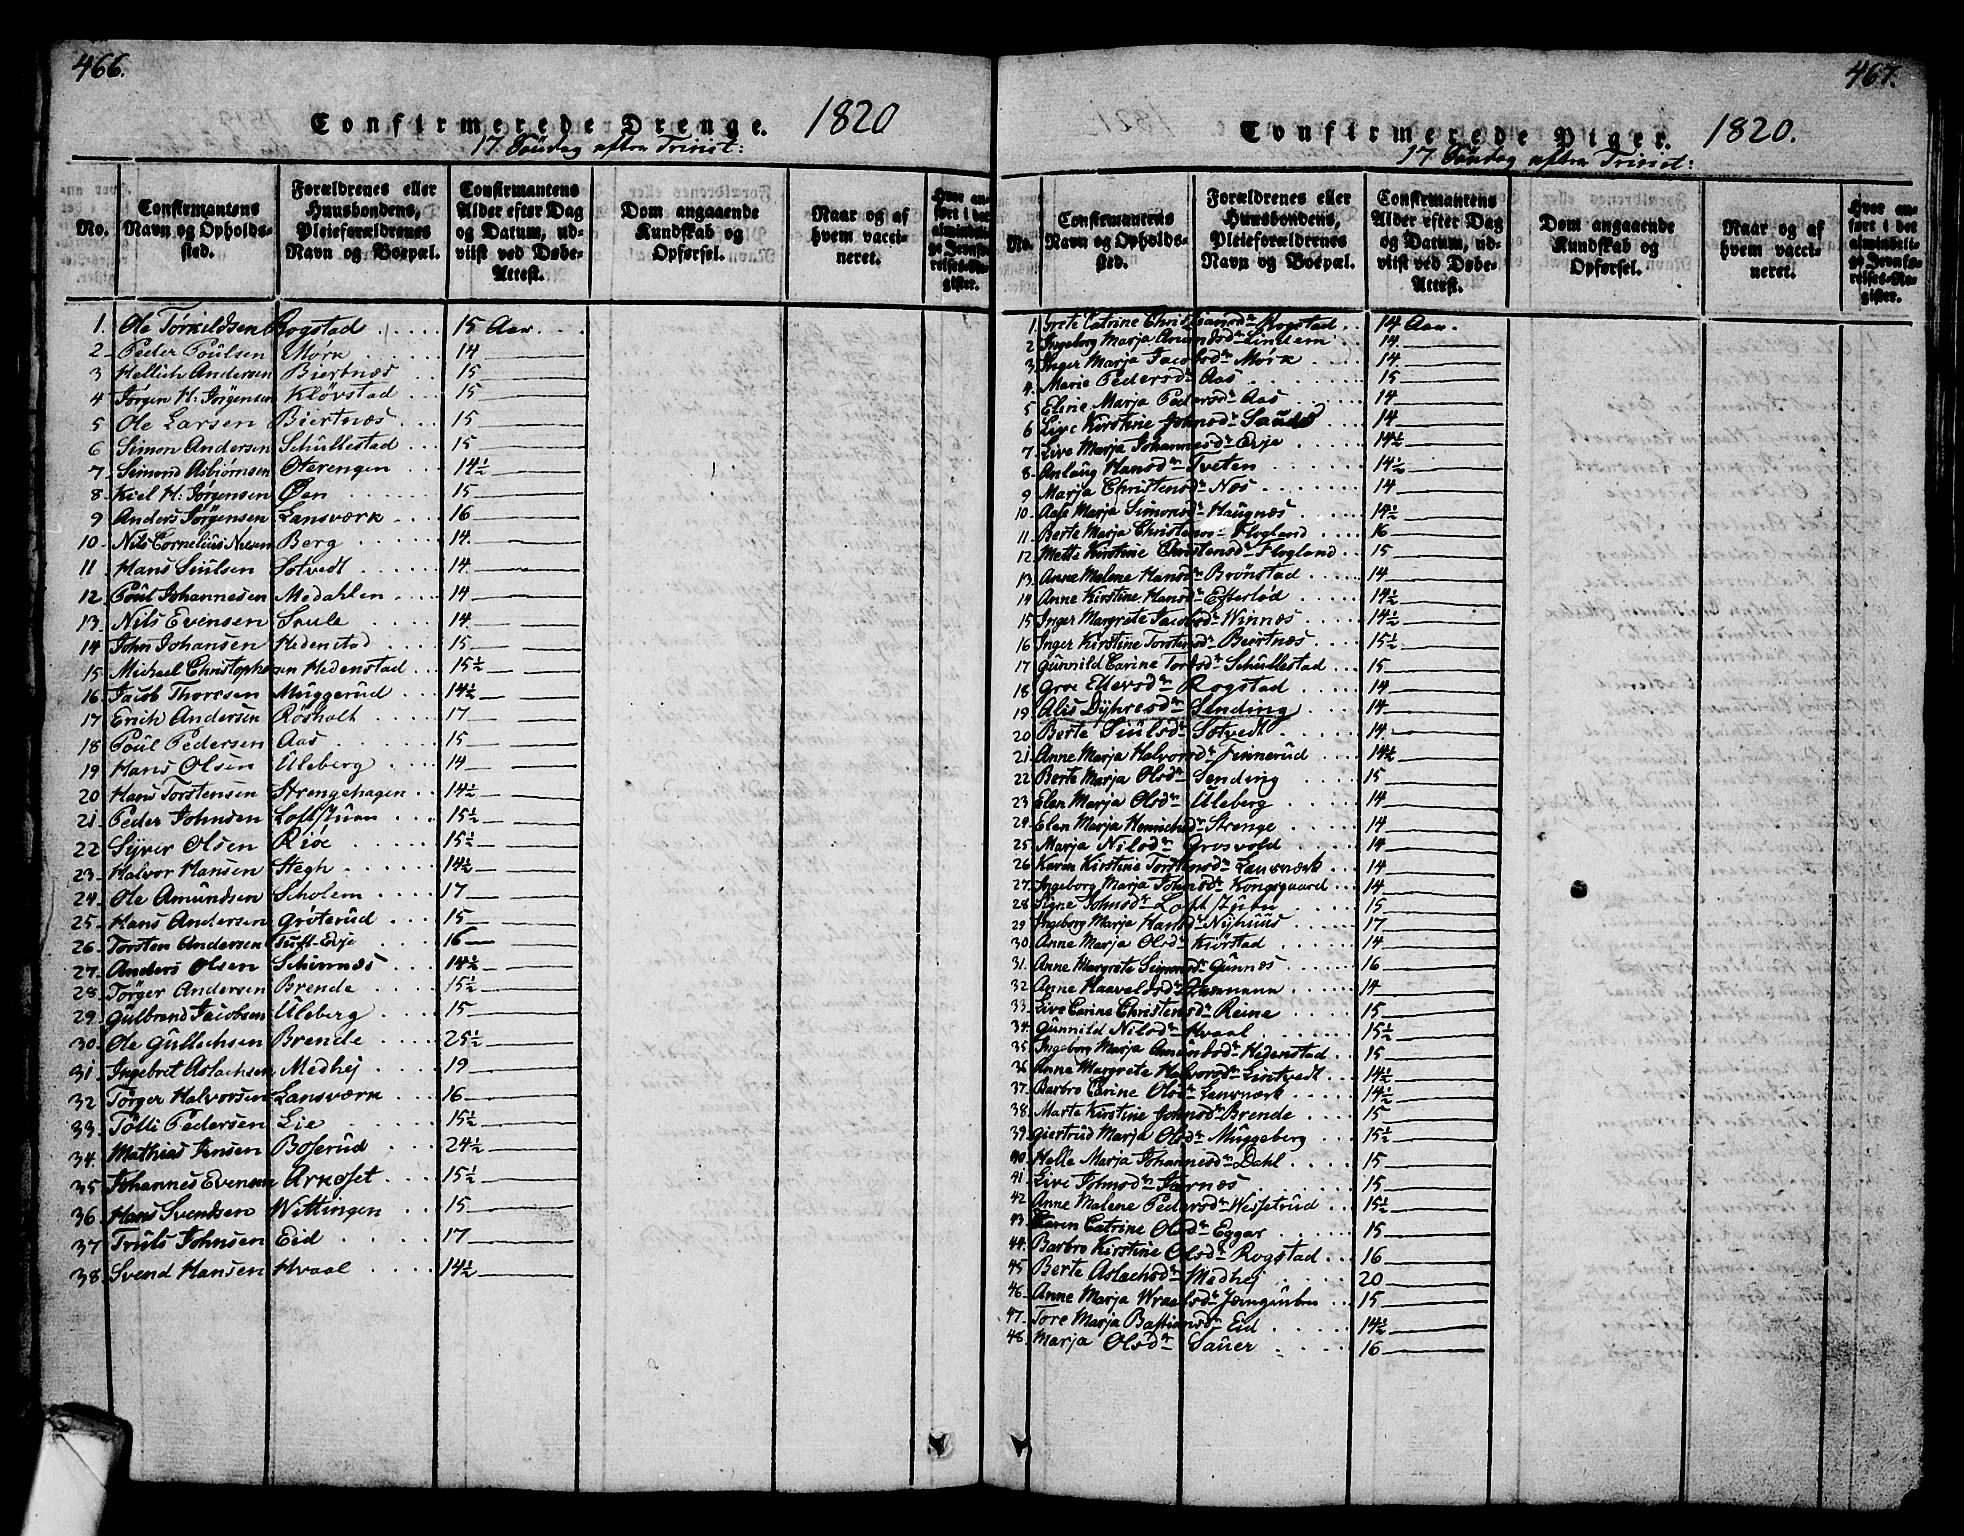 466.
Confirmerede Drenge. 1820
17 Søndag efter Trinit:
No.
Confirmantens Navn og Opholdssted.
Forældrenes eller Huusbondens, Pleieforældrenes Navn og Boepæl.
Confirmantens Alder efter Dag og Datum, udviist ved Døbe-Attest.
Dom angaaende Kundskab og Opførsel.
Naar og af hvem vaccineret.
Hvor anført i det almindelige Jevnførelses-Register.
1. Ole Torkildsen Rogstad 15 Aar
2 Peder Poulsen Mørk 14
3 Hellich Andersen Biertnæs 15
4 Jørgen H: Jørgensen Kløvstad 15
5 Ole Larsen Biertnæs 15
6 Simon Andersen Schullestad 15
7 Simend Asbiørnsen Oterengen 14½
8 Kiel H: Jørgensen Øen 15
9 Anders Jørgensen Lansværk 16
10 Nils Cornelius Nilsen Berg 14
11 Hans Siulsen Sotvedt 14
12 Poul Johannesen Modahlen 14
13 Nils Evensen Skule 14
14 John Johansen Hedenstad 15
15 Michael Christophersen Hedenstad 15½
16 Jacob Thoresen Muggerud 14½
17 Erich Andersen Røsholt 17
18 Poul Pedersen Aas 15
19 Hans Olsen Uleberg 14
20 Hans Torstensen Strengehagen 14½
21 Peder Johnsen Loftstuen 15½
22 Syver Olsen Riøe 15½
23 Halvor Hansen Stegh 14½
24 Ole Amundsen Scholem 17
25 Hans Andersen Grøterud 15
26 Torsten Andersen Tuft-Evje 16
27 Anders Olsen Schinnæs 14½
28 Tørger Andersen Brende 15½
29 Gulbrand Jacobsen Uleberg 15
30 Ole Gullichsen Brende 25½
31 Ingebret Aslachsen Medhej 19
32 Tørger Halvorsen Lansværk 16
33 Tolli Pedersen Lie 15½
34 Mathias Jensen Boserud 24½
35 Johannes Evensen Arnoset 15½
36 Hans Svendsen Wittingen 15
37 Truls Johnsen Eid 17
38 Svend Hansen Hvaal 14½
467.
Confirmerede Piger. 1820.
17 Søndag efter Trinit:
No.
Confirmantens Navn og Opholdssted.
Forældrenes eller Huusbondens, Pleieforældrenes Navn og Boepæl.
Confirmantens Alder efter Dag og Datum, udviist ved Døbe-Attest.
Dom angaaende Kundskab og Opførsel.
Naar og af hvem vaccineret.
Hvor anført i det almindelige Jevnførelses-Register.
1 Grete Catrine Christiansdr Rogstad 14 Aar
2 Ingeborg Marja Amundsdr Lindem 14
3 Inger Marja Jacobsdr Mørk 14
4 Marie Pedersdr Aas 15
5 Eline Marja Pedersdr Aas 14
6 Live Kirstine Johnsdr Sande 14
7 Live Marja Johannesdr Evje 14½
8 Anlaug Hansdr Tveten 14½
9 Marja Christensdr Næs 14
10 Aase Marja Simonsdr Haugnæs 14½
11 Berte Marja Christensdr Flogland 16
12 Mette Kirstine Christensdr Flogland 15
13 Anne Malene Hansdr Brønstad 14
14 Anne Kirstine Hansdr Eftelød 14½
15 Inger Margrete Jacobsdr Winnæs 14½
16 Inger Kirstine Torstensdr Beirtnæs 15½
17 Gunnild Carine Torsdr Schullestad 15
18 Groe Ellevsdr Rogstad 14
19 Alis Dyhresdr Sending 14
20 Berte Siulsdr Sotvedt 14
21 Anne Marja Halvorsdr Finnerud 14½
22 Berte Marja Olsdr Sending 15
23 Elen Marja Olsdr Uleberg 14
24 Elen Marja Henrichsdr Strenge 14
25 Marja Nilsdr Grosvold 14
26 Karen Kirstine Torstensdr Lansværk 14
27 Ingeborg Marja Johnsdr Kongsgaard 14
28 Signe Johnsdr Loftstuen 15
29 Ingeborg Marja Hansdr Nyhuus 17
30 Anne Marja Olsdr Kiørstad 14
31 Anne Margrete Simonsdr Gunnæs 16
32 Anne Haavelsdr 14
33 Live Carine Christensdr Reine 15
34 Gunnild Nilsdr Hvaal 15½
35 Ingeborg Marja Amundsdr Hedenstad 15
36 Anne Margrete Halvorsdr Listvedt 14½
37 Barbro Carine Olsdr Lansværk 14½
38 Marte Kirstine Johnsdr Brende 15
39 Giertrud Marja Olsdr Muggeberg 15½
40 Helle Marja Johannesdr Dahl 15
41 Live Johnsdr Jarnæs 15
42 Anne Malene Pedersdr Wissetrud 15½
43 Karen Catrine Olsdr Eggar 15
44 Barbro Kirstine Olsdr Rogstad 16
45 Berte Aslachsdr Medhej 20
46 Anne Marja Wraalsdr Jerngruben 15
47 Tore Marja Bastiansdr Eid 14½
48 Marja Olsdr Sauer 16